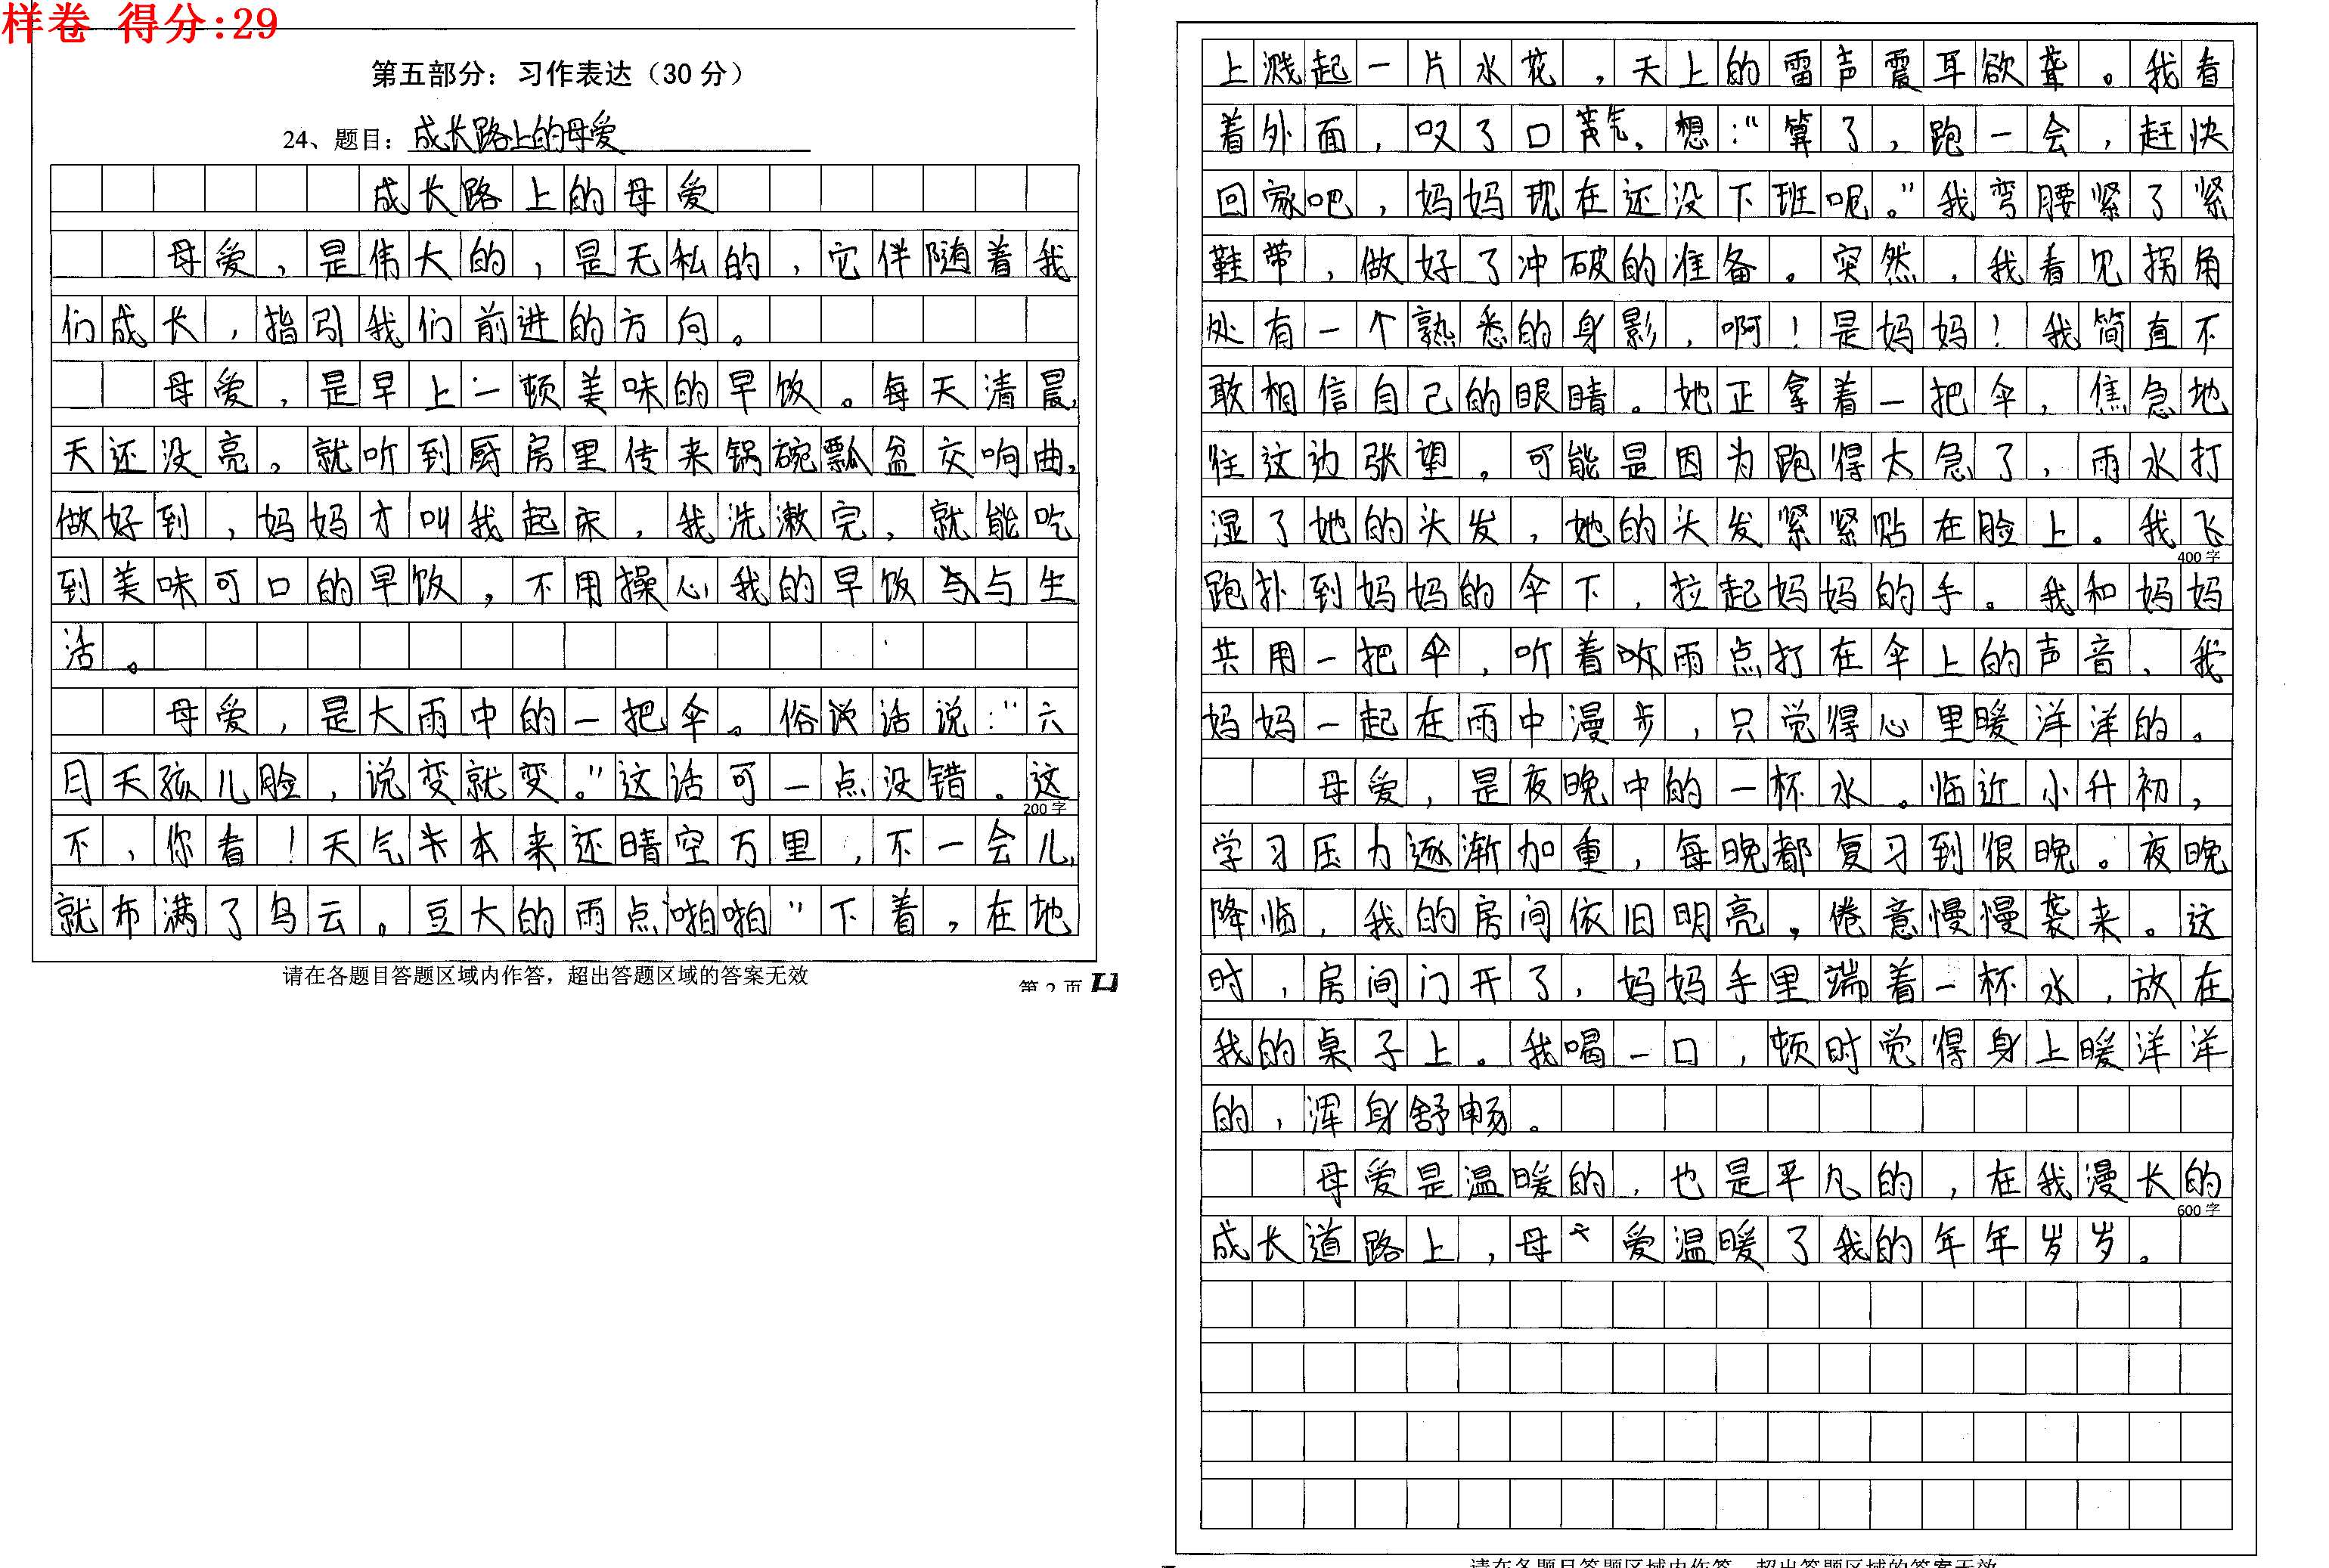 样卷 得分:29
第五部分：习作表达（30 分）
24、题目：成长路上的母爱
成长路上的母爱
母爱，是伟大的，是无私的，它伴随着我
们成长，指引我们前进的方向。
母爱，是早上一顿美味的早饭。每天清晨，
天还没亮，就听到厨房里传来锅碗瓢盆交响曲，
做好到，妈妈才叫我起床，我洗漱完，就能吃
到美味可口的早饭，不用操心我的早饭与生
活。
母爱，是大雨中的一把伞。俗话说："六
月天孩儿脸，说变就变。"这话可一点没错。这
200 字
不，你看！天气本来还晴空万里，不一会儿，
就布满了乌云。豆大的雨点"啪啪"下着，在地
请在各题目答题区域内作答，超出答题区域的答案无效
第 2 页
上溅起一片水花，天上的雷声震耳欲聋。我看
着外面，叹了口气，想："算了，跑一会，赶快
回家吧，妈妈现在还没下班呢。"我弯腰紧了紧
鞋带，做好了冲破的准备。突然，我看见拐角
处有一个熟悉的身影，啊！是妈妈！我简直不
敢相信自己的眼睛。她正拿着一把伞，焦急地
往这边张望。可能是因为跑得太急了，雨水打
湿了她的头发，她的头发紧紧贴在脸上。我飞
400 字
跑扑到妈妈的伞下，拉起妈妈的手。我和妈妈
共用一把伞，听着雨点打在伞上的声音，我
妈妈一起在雨中漫步，只觉得心里暖洋洋的。
母爱，是夜晚中的一杯水。临近小升初，
学习压力逐渐加重，每晚都复习到很晚。夜晚
降临，我的房间依旧明亮，倦意慢慢袭来。这
时，房间门开了，妈妈手里端着一杯水，放在
我的桌子上。我喝一口，顿时觉得身上暖洋洋
的，浑身舒畅。
母爱是温暖的，也是平凡的，在我漫长的
600 字
成长道路上，母爱温暖了我的年年岁岁。
请在各题目答题区域内作答，超出答题区域的答案无效